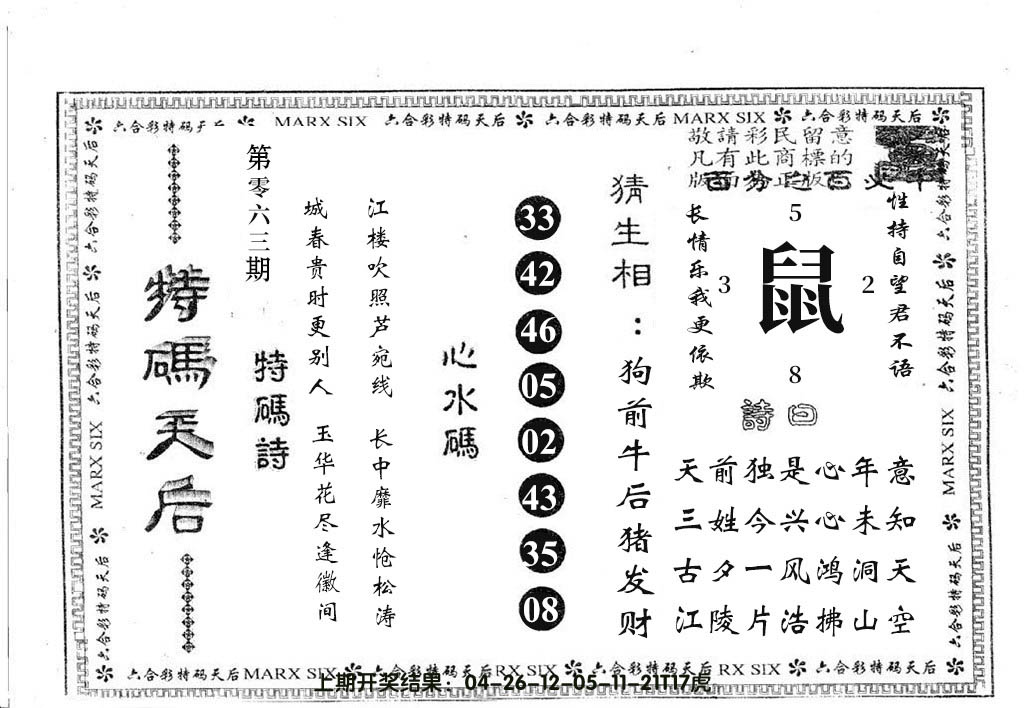 六合彩特码天后 MARX SIX 六合彩特码天后 六合彩特码天后 MARX SIX 六合彩特码天后
敬請彩民留意
凡有此商標的
特碼天后
第零六三期
特碼詩
城春贵时更别人
玉华花尽逢徽间
江楼吹照芦宛线
长中靡水怆松涛
心水碼
33
42
46
05
02
43
35
08
猜生相：狗前牛后猪发财
长情乐我更依欺
5
3
鼠
2
8
性持自望君不语
詩曰
天前独是心年意
三姓今兴心未知
古夕一风鸿洞天
江陵片浩拂山空
六合彩特码天后
MARX SIX
六合彩特码天后
六合彩特码天后
MARX SIX
六合彩特码天后
六合彩特码天后 MARX SIX 六合彩特码天后 RX SIX 六合彩特码天后 RX SIX 六合彩特码天后
上期开奖结果：04-26-12-05-11-21T17虎